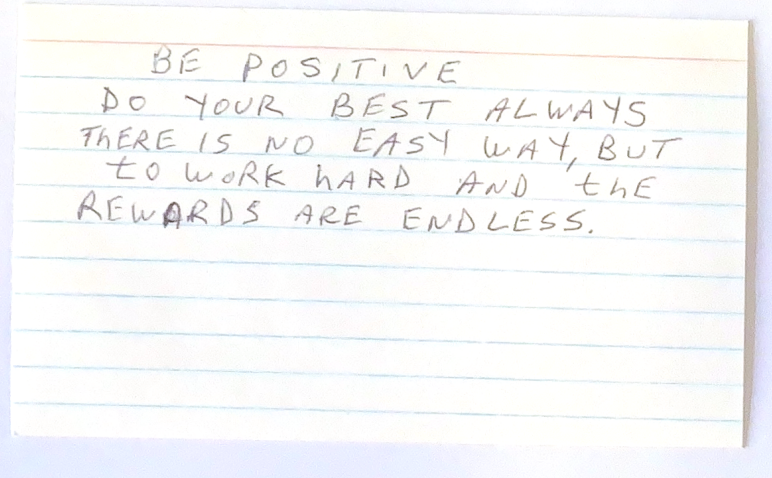 BE POSITIVE
DO YOUR BEST ALWAYS
ThERE IS NO EASY WAY, BUT
to WORK hARD AND thE
REWARDS ARE ENDLESS.